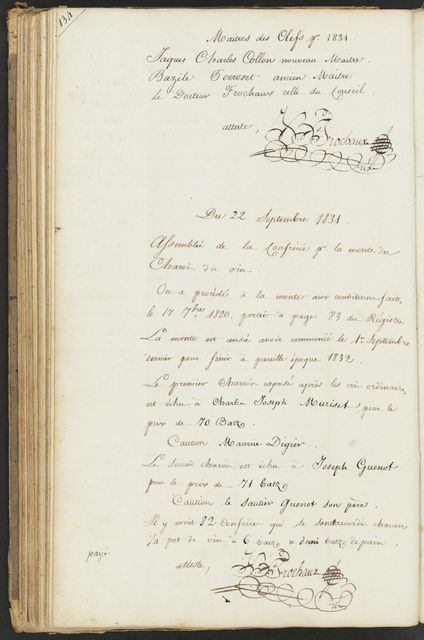 134
Maitres des Clefs pr. 1831.
Jaques Charles Collon nouveau Maitre.
Bazile Perroset ancien Maitre
le Docteur Frochaux celle du Conseil.
atteste,
Frochaux
Du 22 Septembre 1831.
Assemblée de la Confrérie pr. la monte du
Charoi du vin.
On a procédé à la monte aux conditions faites
le 17 7bre 1820, portée à page 83 du Régistre
La monte est censée avoir commencé le 1er Septembre
dernier pour finir à pareille époque 1832.
Le premier Charoin exposé après les cris ordinaires
est échu à Charles Joseph Muriset pour le
prix de 70 Batz.
Caution Maurice Digier.
Le second charoin est échu à Joseph Guenot
pour le prix de 71 batz
Caution le Sautier Guenot son père.
Il y avoit 82 Confrères qui se sont chacun
1/2 pot de vin à 6 batz, & demi batz de pain.
payé
atteste,
Frochaux